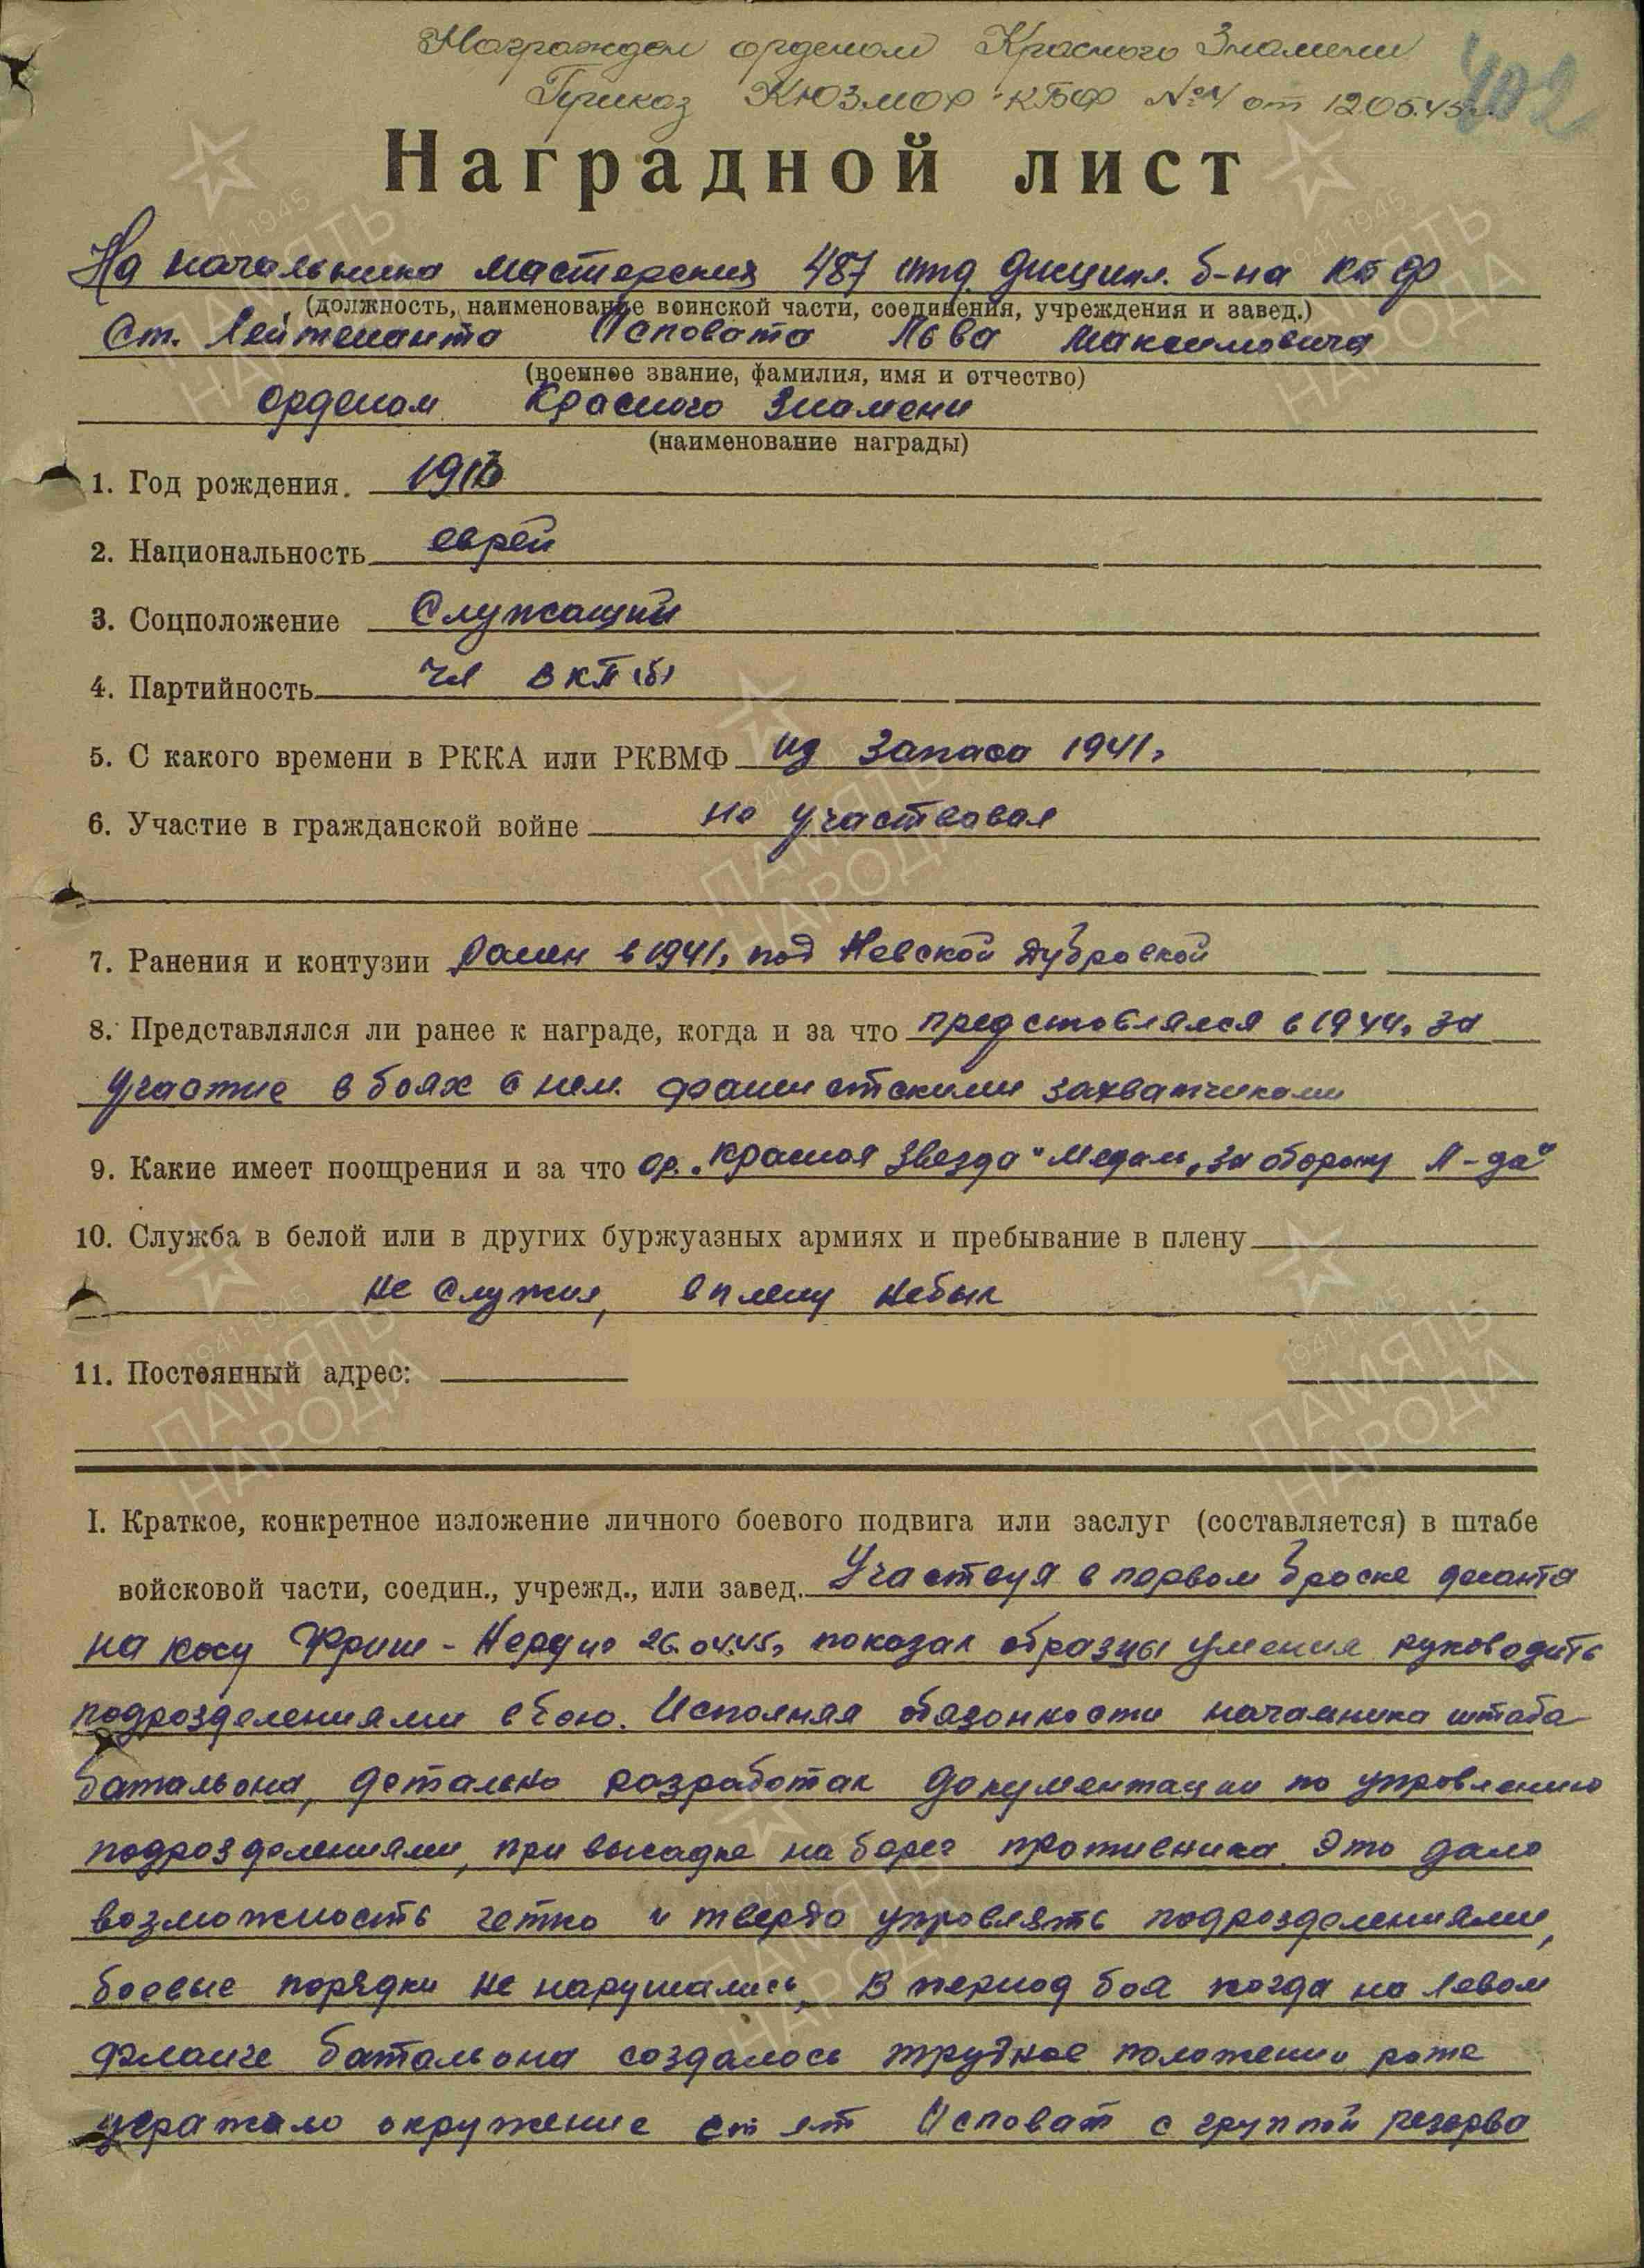 Награжден орденом Красного Знамени
Приказ КЮЗМОР КБФ №4 от 12.05.45г.
402
Наградной лист
На начальника мастерских 487 отд. дисципл. б-на КБФ
(должность, наименование воинской части, соединения, учреждения и завед.)
Ст. Лейтенанта Исповата Льва Максимовича
(военное звание, фамилия, имя и отчество)
орденом Красного Знамени
(наименование награды)
1. Год рождения.
2. Национальность еврей
3. Соцположение Служащий
4. Партийность чл ВКП(б)
5. С какого времени в РККА или РКВМФ из запаса 1941г
6. Участие в гражданской войне не участвовал
7. Ранения и контузии Ранен в 1941г под Невской Дубровкой
8. Представлялся ли ранее к награде, когда и за что представлялся в 1944г за
участие в боях с нем. фашистскими захватчиками
9. Какие имеет поощрения и за что ор. „Красная Звезда" Медаль „За оборону Л-да"
10. Служба в белой или в других буржуазных армиях и пребывание в плену
не служил, в плену небыл
11. Постоянный адрес:
I. Краткое, конкретное изложение личного боевого подвига или заслуг (составляется) в штабе
войсковой части, соедин., учрежд., или завед. Участвуя в первом броске десанта
на косу Фриш-Нерунг 26.04.45г показал образцы умения руководить
подразделениями в бою. Исполняя обязанности начальника штаба
батальона, детально разработал документации по управлению
подразделениями, при высадке на берег противника. Это дало
возможность четко и твердо управлять подразделениями,
боевые порядки не нарушались. В период боя когда на левом
фланге батальона создалось трудное положение роте
угражало окружение ст лт Исповат с группой резерва
1941-1945
ПАМЯТЬ
НАРОДА